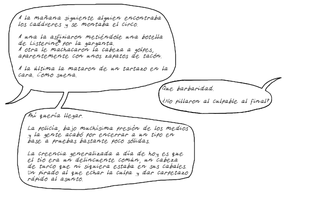 A la mañana siguiente alguien encontraba
los cadáveres y se montaba el circo.
A una la asfixiaron metiéndole una botella
de Listerine por la garganta.
A otra le machacaron la cabeza a golpes,
aparentemente con unos zapatos de tacón.
A la última la mataron de un tartazo en la
cara. Como suena.
Qué barbaridad.
¿No pillaron al culpable al final?
Ahí quería llegar.
La policía, bajo muchísima presión de los medios
y la gente acabó por encerrar a un tipo en
base a pruebas bastante poco sólidas.
La creencia generalizada a día de hoy es que
el tío era un delincuente común, un cabeza
de turco que ni siquiera estaba en sus cabales
un pirado al que echar la culpa y dar carpetazo
rápido al asunto.